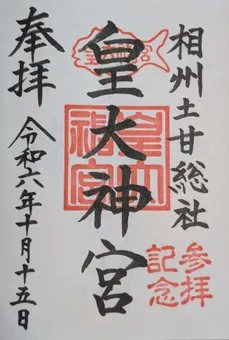 相州土甘総社
参拝
記念
皇大神宮
皇大
神宮
奉拝
令和六年十月十五日